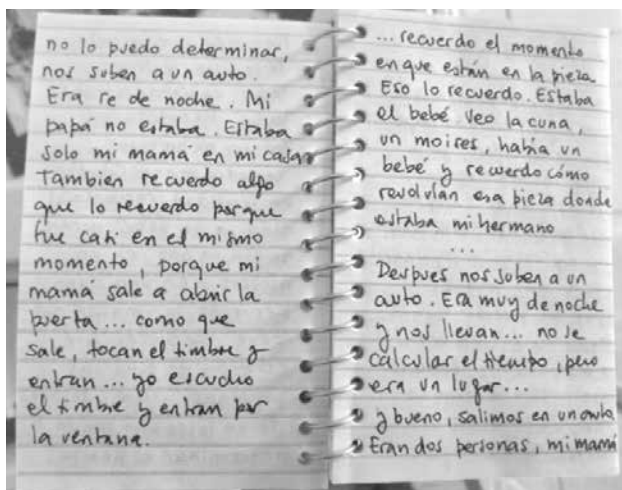 no lo puedo determinar,
nos suben a un auto.
Era re de noche. Mi
papá no estaba. Estaba
solo mi mamá en mi casa
Tambien recuerdo algo
que lo recuerdo porque
fue casi en el mismo
momento, porque mi
mamá sale a abrir la
puerta... como que
sale, tocan el timbre y
entran... yo escucho
el timbre y entran por
la ventana.
... recuerdo el momento
en que están en la pieza
Eso lo recuerdo. Estaba
el bebé. Veo la cuna,
un moises, había un
bebé y recuerdo cómo
revolvían esa pieza donde
estaba mi hermano
...
Despues nos suben a un
auto. Era muy de noche
y nos llevan... no se
calcular el tiempo, pero
era un lugar...
y bueno, salimos en un auto.
Eran dos personas, mi mamá